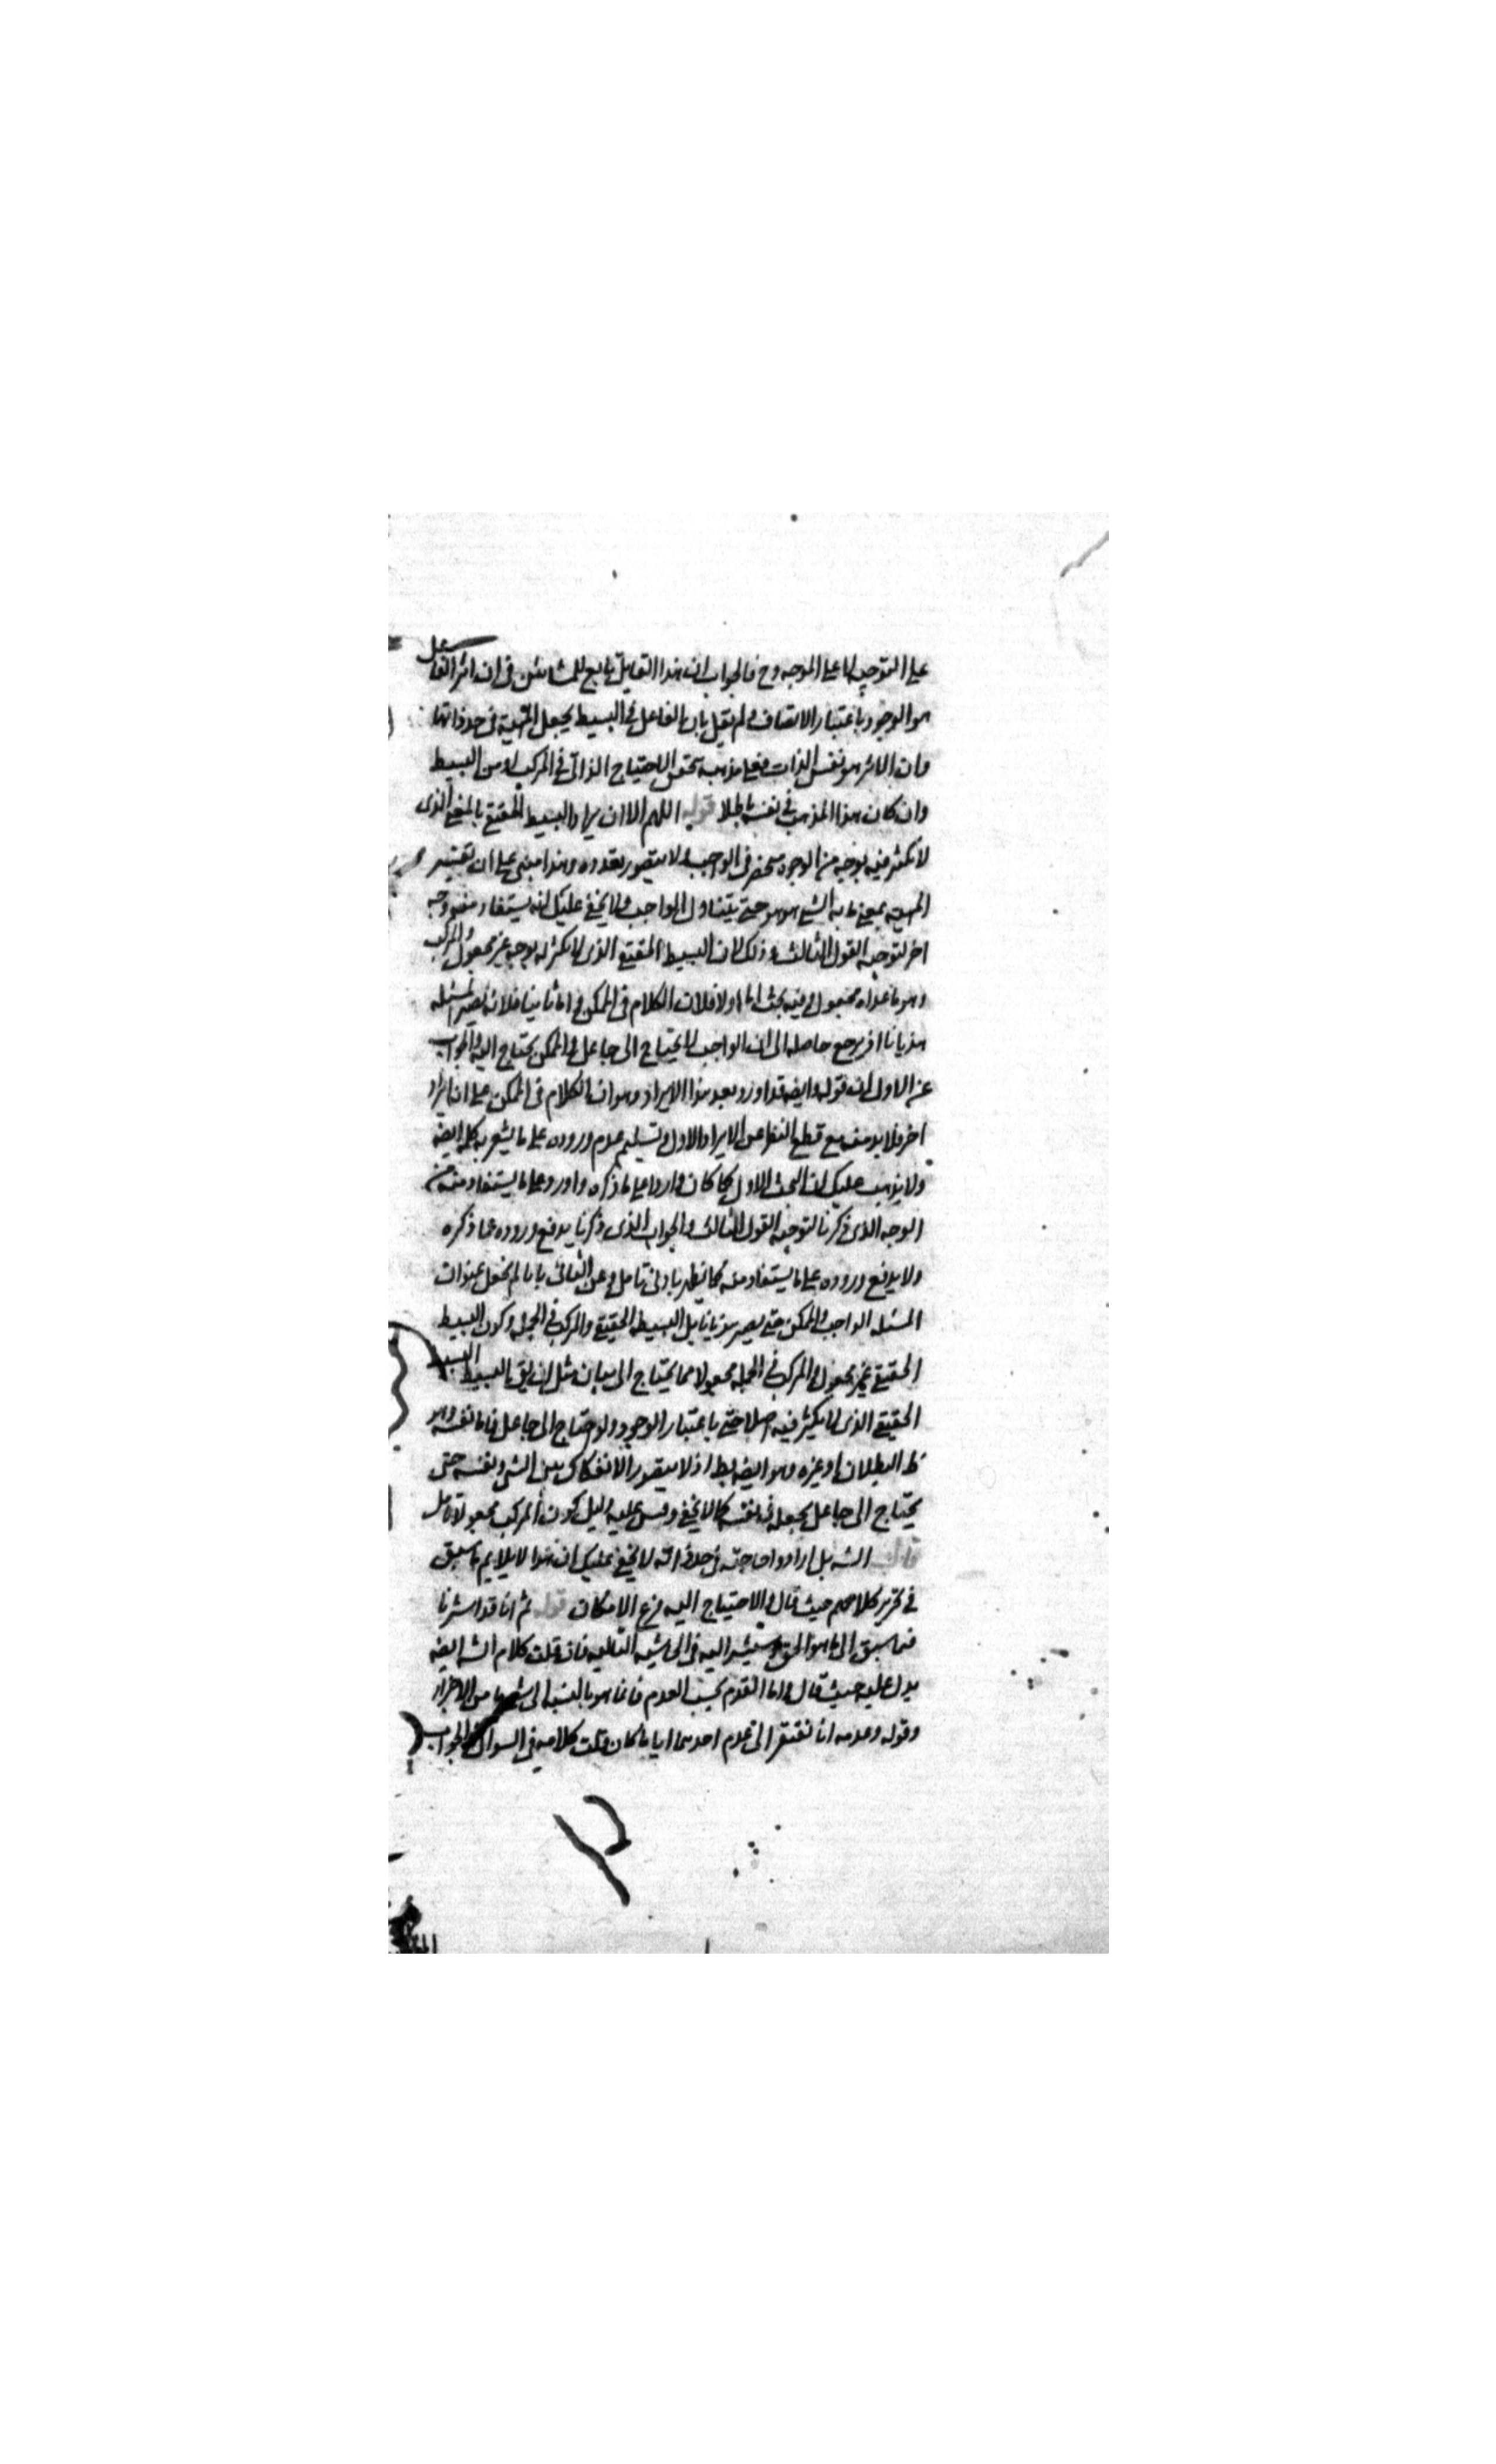 على التوجيه لا على الموجه وح فالجواب ان هذا القايل تابع للمشائين في ان اثر الفاعل
هو الوجود باعتبار الاتصاف ولم يقل بان الفاعل في البسيط يجعل المهية في حد ذاتها
وان الاثر هو نفس الذات فعلى مذهبه تحقق الاحتياج الذاتي في المركب لا من البسيط
وان كان هذا المذهب في نفسه باطلا قوله اللهم الا ان يراد البسيط الحقيقي بالمعنى الذى
لا تكثر فيه بوجه من الوجوه منحصر في الواجب ولا يتصور تعدده وهذا مبنى على ان تفسير
المهية بمعنى ما به الشي هو هو حتى يتناول الواجب ولا يخفى عليك انه يستفاد منه وجه
اخر لتوجيه القول الثالث وذلك لان البسيط الحقيقي الذى لا تكثر له بوجه غير مجعول والمركب
وهو ما عداه مجعول وفيه بحث اما اولا فلان الكلام في الممكن واما ثانيا فلانه يصير المسئله
هذيانا اذ يرجع حاصله الى ان الواجب لا يحتاج الى جاعل والممكن يحتاج اليه والجواب
عن الاول ان قوله وايضه قد اورد بعد هذا الايراد وهو ان الكلام في الممكن على انه ايراد
اخر فلا بد منه مع قطع النظر عن الايراد الاول وتسليم عدم وروده على ما يشعر به كلمه ايضه
ولا يذهب عليك ان البحث الاول كما كان واردا على ما ذكره واورد على ما يستفاد منه من
الوجه الذى ذكرنا لتوجيه القول الثالث والجواب الذى ذكرنا يدفع وروده عما ذكره
ولا يدفع وروده على ما يستفاد منه كما يظهر بادنى تامل وعن الثانى بانا لم نجعل عنوان
المسئله الواجب والممكن حتى يصير هذيانا بل البسيط الحقيقي والمركب في الجمله وكون البسيط
الحقيقي غير مجعول والمركب في الجمله مجعولا مما يحتاج الى بيان مثل ان يق البسيط
الحقيقي الذى لا تكثر فيه اصلا حتى باعتبار الوجود لو احتاج الى جاعل فاما نفسه وهو
ظ البطلان او غيره وهو ايضه بط اذ لا يتصور الانفكاك بين الشي ونفسه حتى
يحتاج الى جاعل يجعله نفسه كما لا يخفى وقس عليه دليل كون المركب مجعولا تامل
قال الشه بل ارادوا حاجته في حد ذاته لا يخفى عليك ان هذا لا يلايم ما سبق
في تحرير كلامهم حيث قال والاحتياج اليه فرع الامكان قوله ثم انا قد اشرنا
فيما سبق الى ما هو الحق وسنشير اليه في الحاشيه التاليه فان قلت كلام الشه ايضه
يدل عليه حيث قال واما التقدم بحسب العدم فانما هو بالنسبه الى شي ما من الاجزاء
وقوله وعدمه انما تفتقر الى عدم احدهما ايا ما كان قلت كلامه في السوال والجواب